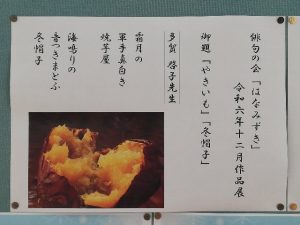 俳句の会「はなみずき」
令和六年十二月作品展
御題「やきいも」「冬帽子」
多賀 啓子先生
霜月の
軍手真白き
焼芋屋
海鳴りの
音つきまとふ
冬帽子